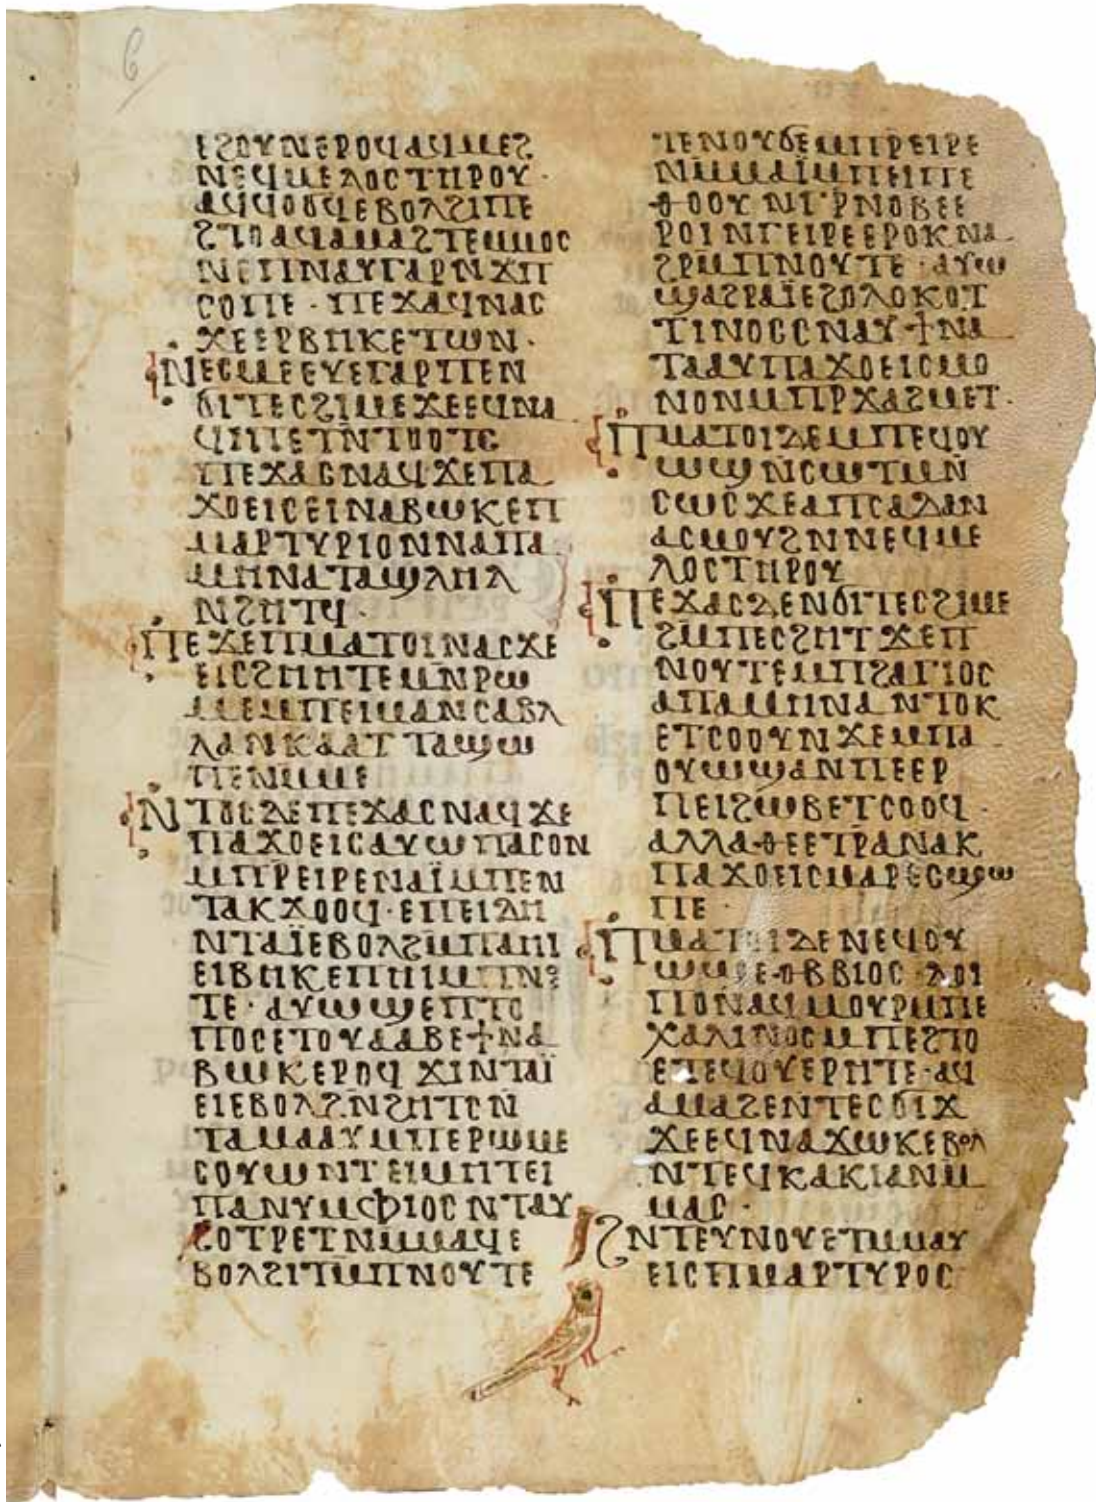 6
ⲉϩⲟⲩⲛⲉⲣⲟϥⲁϥⲙⲉϩ
ⲛⲉϥⲙⲉⲗⲟⲥⲧⲏⲣⲟⲩ·
ⲁϥϥⲟϭϥⲉⲃⲟⲗϩⲓⲡⲉ
ϩⲧⲟⲁϥⲁⲙⲁϩⲧⲉⲙⲙⲟⲥ
ⲛⲉⲡⲛⲁⲩⲅⲁⲣⲛϫⲡ
ⲥⲟⲡⲉ· ⲡⲉϫⲁϥⲛⲁⲥ
ϫⲉⲉⲣⲃⲏⲕⲉⲧⲱⲛ·
ⲛⲉⲥⲙⲉⲉⲩⲉⲅⲁⲣⲡⲉⲛ
ϭⲓⲧⲉⲥϩⲓⲙⲉϫⲉⲉϥⲛⲁ
ϥⲓⲡⲉⲧⲛ̄ⲧⲟⲟⲧⲥ
ⲡⲉϫⲁⲥⲛⲁϥϫⲉⲡⲁ
ϫⲟⲉⲓⲥⲉⲓⲛⲁⲃⲱⲕⲉⲡ
ⲙⲁⲣⲧⲩⲣⲓⲟⲛⲛⲁⲡⲁ
ⲙⲏⲛⲁⲧⲁϣⲗⲏⲗ
ⲛϩⲏⲧϥ·
ⲡⲉϫⲉⲡⲙⲁⲧⲟⲓⲛⲁⲥϫⲉ
ⲉⲓⲥϩⲏⲏⲧⲉⲙⲛⲣⲱ
ⲙⲉⲙⲡⲉⲓⲙⲁⲛⲥⲁⲃⲗ
ⲗⲁⲛⲕⲁⲁⲧ ⲧⲁϣⲱ
ⲡⲉⲛⲙⲙⲉ
ⲛⲧⲟⲥⲇⲉⲡⲉϫⲁⲥⲛⲁϥϫⲉ
ⲡⲁϫⲟⲉⲓⲥⲁⲩⲱⲡⲁⲥⲟⲛ
ⲙⲡⲣⲉⲓⲣⲉⲛⲁⲓ̈ⲙⲡⲉⲛ
ⲧⲁⲕϫⲟⲟϥ·ⲉⲡⲉⲓⲇⲏ
ⲛⲧⲁⲓ̈ⲉⲃⲟⲗϩⲙ̄ⲡⲁⲏⲓ
ⲉⲓⲃⲏⲕⲉⲡⲏⲓⲙⲡⲛ
ⲧⲉ·ⲁⲩⲱϣⲉⲡⲧⲟ
ⲡⲟⲥⲉⲧⲟⲩⲁⲁⲃⲉϯⲛⲁ
ⲃⲱⲕⲉⲣⲟϥϫⲓⲛⲧⲁⲓ̈
ⲉⲓⲉⲃⲟⲗϩ̄ⲛϩⲏⲧⲥⲛ̄
ⲧⲁⲙⲁⲁⲩⲙⲡⲉⲣⲱⲙⲉ
ⲥⲟⲩⲱⲛⲧⲉⲓⲙⲏⲧⲉⲓ
ⲡⲁⲛⲩⲙⲫⲓⲟⲥⲛⲧⲁⲩ
ϩⲟⲧⲣⲉⲧⲛⲙⲙⲁϥⲉ
ⲃⲟⲗϩⲓⲧⲙ̄ⲡⲛⲟⲩⲧⲉ
ⲧⲉⲛⲟⲩϭⲉⲙⲡⲣⲉⲓⲣⲉ
ⲛⲙⲙⲁⲓ̈ⲙⲡⲉⲓⲡⲉ
ⲑⲟⲟⲩ ⲛⲅⲣⲛⲟⲃⲉⲉ
ⲣⲟⲓⲛⲅⲉⲓⲣⲉⲉⲣⲟⲕⲛⲁ
ϩⲣⲙ̄ⲡⲛⲟⲩⲧⲉ·ⲁⲩⲱ
ϣⲁϩⲣⲁⲓ̈ⲉϩⲟⲗⲟⲕⲟⲧ
ⲧⲓⲛⲟⲥⲥⲛⲁⲩϯⲛⲁ
ⲧⲁⲁⲩⲡⲁϫⲟⲉⲓⲥⲙⲟ
ⲛⲟⲛⲙⲡⲣϫⲁϩⲙⲉⲧ·
ⲡⲙⲁⲧⲟⲓⲇⲉⲙⲡⲉϥⲟⲩ
ⲱϣⲛ̄ⲥⲱⲧⲙⲛ̄
ⲥⲱⲥϫⲉⲁⲡⲥⲁⲇⲁⲛ
ⲁⲥⲙⲟⲩϩⲛⲛⲉϥⲙⲉ
ⲗⲟⲥⲧⲏⲣⲟⲩ
ⲡⲉϫⲁⲥⲇⲉⲛϭⲓⲧⲉⲥϩⲓⲙⲉ
ϩⲙ̄ⲡⲉⲥϩⲏⲧϫⲉⲡ
ⲛⲟⲩⲧⲉⲙⲡϩⲁⲅⲓⲟⲥ
ⲁⲡⲁⲙⲏⲛⲁⲛⲧⲟⲕ
ⲉⲧⲥⲟⲟⲩⲛϫⲉⲙⲡⲁ
ⲟⲩⲱϣⲁⲛⲡⲉⲉⲣ
ⲡⲉⲓϩⲱⲃⲉⲧⲥⲟⲟϥ·
ⲁⲗⲗⲁⲑⲉⲉⲧⲣⲁⲛⲁⲕ
ⲡⲁϫⲟⲉⲓⲥⲙⲁⲣⲉⲥϣⲱ
ⲡⲉ·
ⲡⲙⲁⲧⲟⲓⲇⲉⲛⲉϥⲟⲩ
ⲱϣⲉⲑⲃⲃⲓⲟⲥ·ⲗⲟⲓ
ⲡⲟⲛⲁϥⲙⲟⲩⲣⲙⲡⲉ
ⲭⲁⲗⲓⲛⲟⲥⲙⲡⲉϩⲧⲟ
ⲉⲧⲉϥⲟⲩⲉⲣⲏⲧⲉ·ⲁϥ
ⲁⲙⲁϩⲉⲛⲧⲉⲥϭⲓϫ
ϫⲉⲉϥⲛⲁϫⲱⲕⲉⲃⲟⲗ
ⲛⲧⲉϥⲕⲁⲕⲓⲁⲛⲙ̄
ⲙⲁⲥ·
ϩⲛⲧⲉⲩⲛⲟⲩⲉⲧⲙⲙⲁⲩ
ⲉⲓⲥⲡⲙⲁⲣⲧⲩⲣⲟⲥ